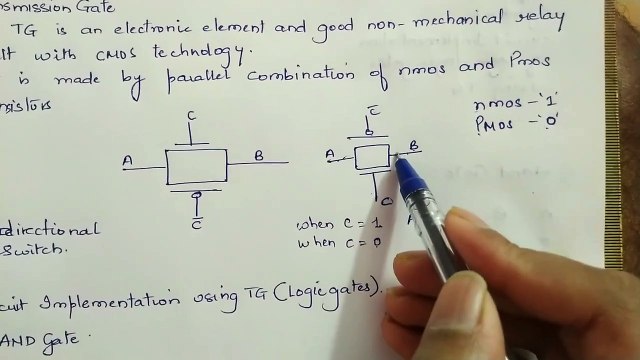 nsmission Gate
TG is an electronic element and good non-mechanical relay
lt with CMOS technology.
is made by parallel combination of nmos and Pmos
nsistors
nmos - '1'
PMOS - '0'
C
A B
C̅
C̅
A B
C
directional
Switch.
when C = 1
when C = 0
cuit Implementation using TG (Logic gates).
AND Gate.